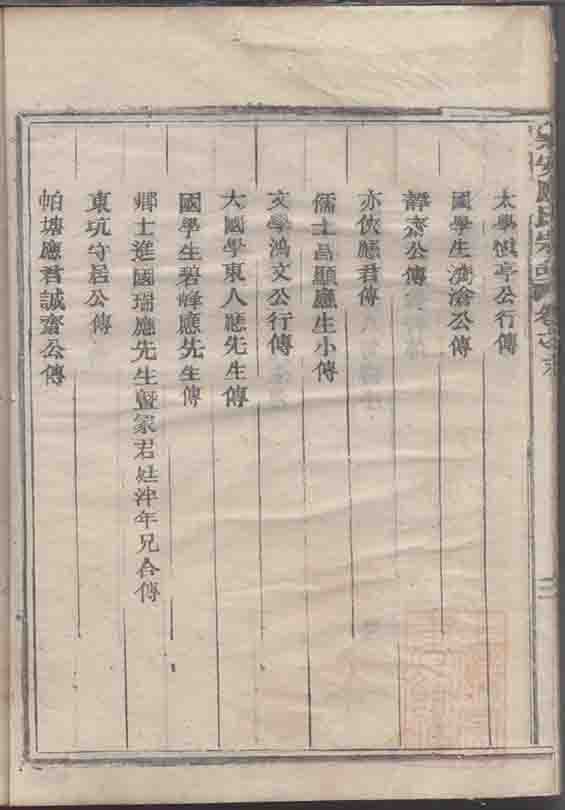 太學慎亭公行傳
國學生滄公傳
齋公傳
亦俠應君傳
儒士昌顯應生小傳
文學鴻文公行傳
大國學東人應先生傳
國學生碧峰應先生傳
鄉士進國瑞應先生暨家君姓泮年兄合傳
東坑守居公傳
帕塘應君誠齋公傳
應氏宗譜
二